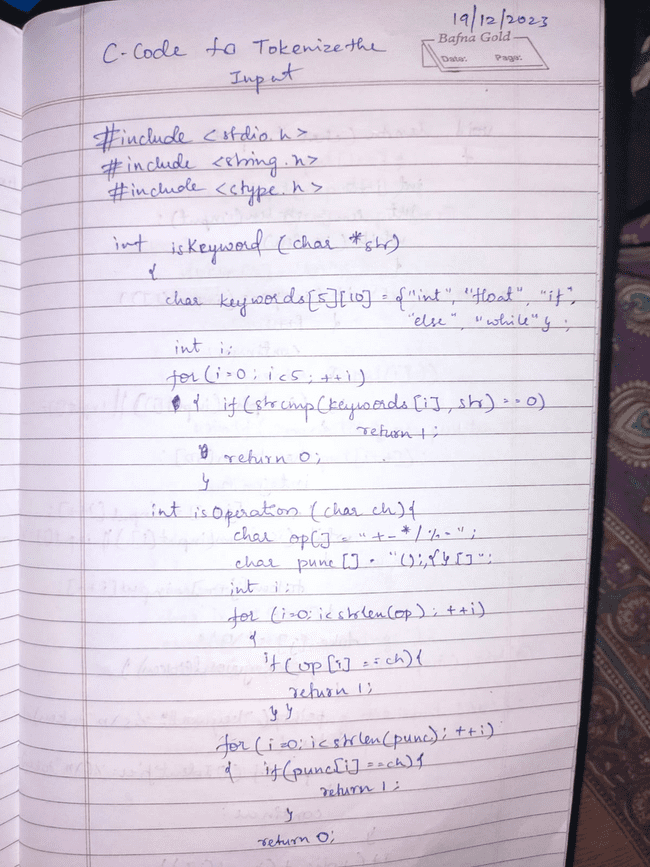 19/12/2023
Bafna Gold
Date: Page:
C-Code to Tokenize the
Input
#include <stdio.h>
#include <string.h>
#include <ctype.h>
int isKeyword (char *str)
{
char keywords[5][10] = {"int", "float", "if",
"else", "while"} ;
int i;
for(i=0; i<5; ++i)
{ if(strcmp(keywords[i], str) == 0)
return 1;
return 0;
}
int isOperation (char ch){
char op[] = "+-*/%=";
char punc [] = "();,{}[]";
int i;
for (i=0; i<strlen(op); ++i)
{
if(op[i] == ch){
return 1;
} }
for (i=0; i<strlen(punc); ++i)
{ if(punc[i] == ch){
return 1;
}
return 0;